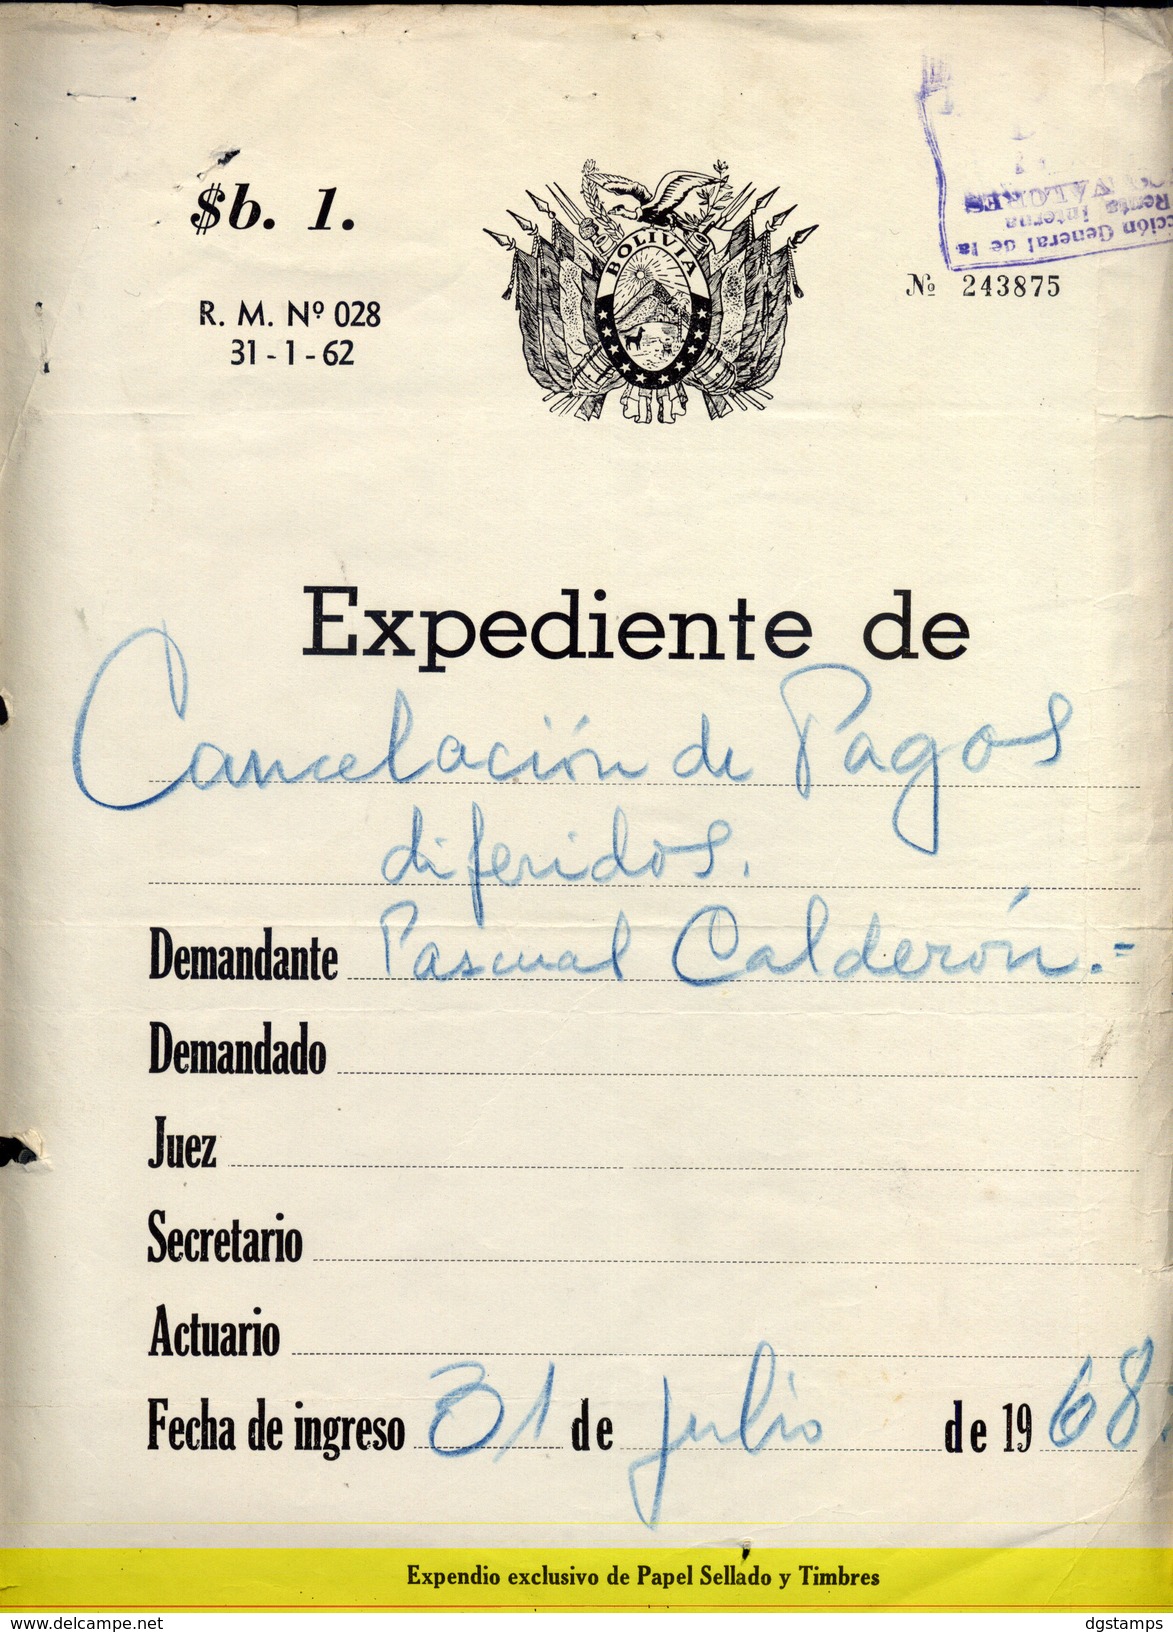 $b. 1.
R. M. Nº 028
31-1-62
BOLIVIA
cción General de la
Renta Interna
VALORES
Nº 243875
Expediente de
Cancelación de Pagos
diferidos.
Demandante Pascual Calderón.=
Demandado
Juez
Secretario
Actuario
Fecha de ingreso 31 de julio de 1968.
Expendio exclusivo de Papel Sellado y Timbres
www.delcampe.net
dgstamps